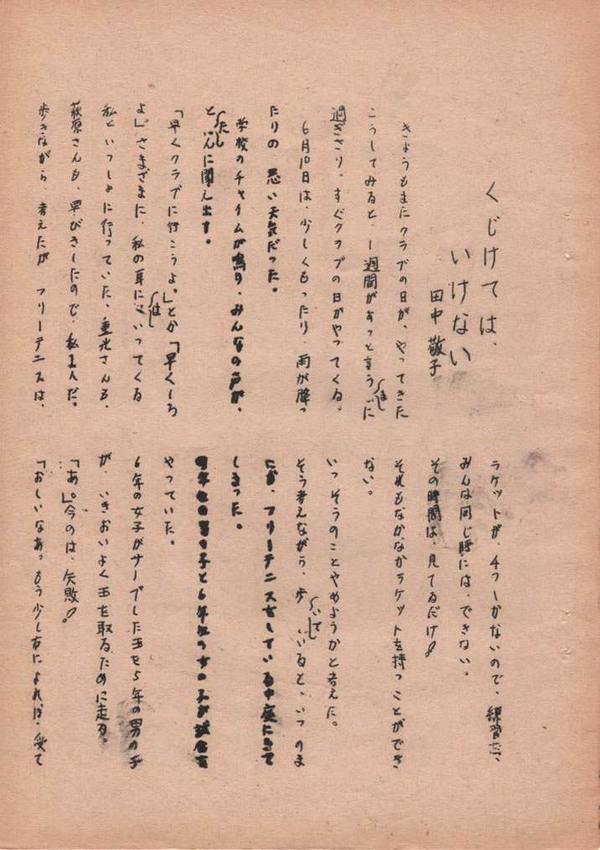 くじけては、
いけない
田中敬子
きょうもまたクラブの日が、やってきた
こうしてみると、一週間があっと言うまに
過ぎさり、すぐクラブの日がやってくる。
6月10日は、少しくもったり、雨が降っ
たりの 悪い天気だった。
学校のチャイムが鳴り、みんなの声が、
といんに聞え出す。
「早くクラブに行こうよ。」とか「早くしろ
よ」さまざまに、私の耳にはいってくる
私といっしょに行っていた、重光さんも、
萩原さんも、早びきしたので、私1人だ。
歩きながら、考えたが フリーテニスは、
ラケットが、4つしかないので、練習も、
みんな同じ時には、できない。
その時間は、見てるだけ!
それもなかなかラケットを持つことができ
ない。
いっそうのことやめようかと考えた。
そう考えながら、歩いていると、いつのま
にか、フリーテニスをしている中庭にきて
しまった。
5年生の男の子と6年生の女の子が試合を
やっていた。
6年の女子がサーブした玉を5年の男の子
が、いきおいよく玉を取るために走る。
「あ。」今のは、失敗!
「おしいなあ。もう少し右によれば、受て